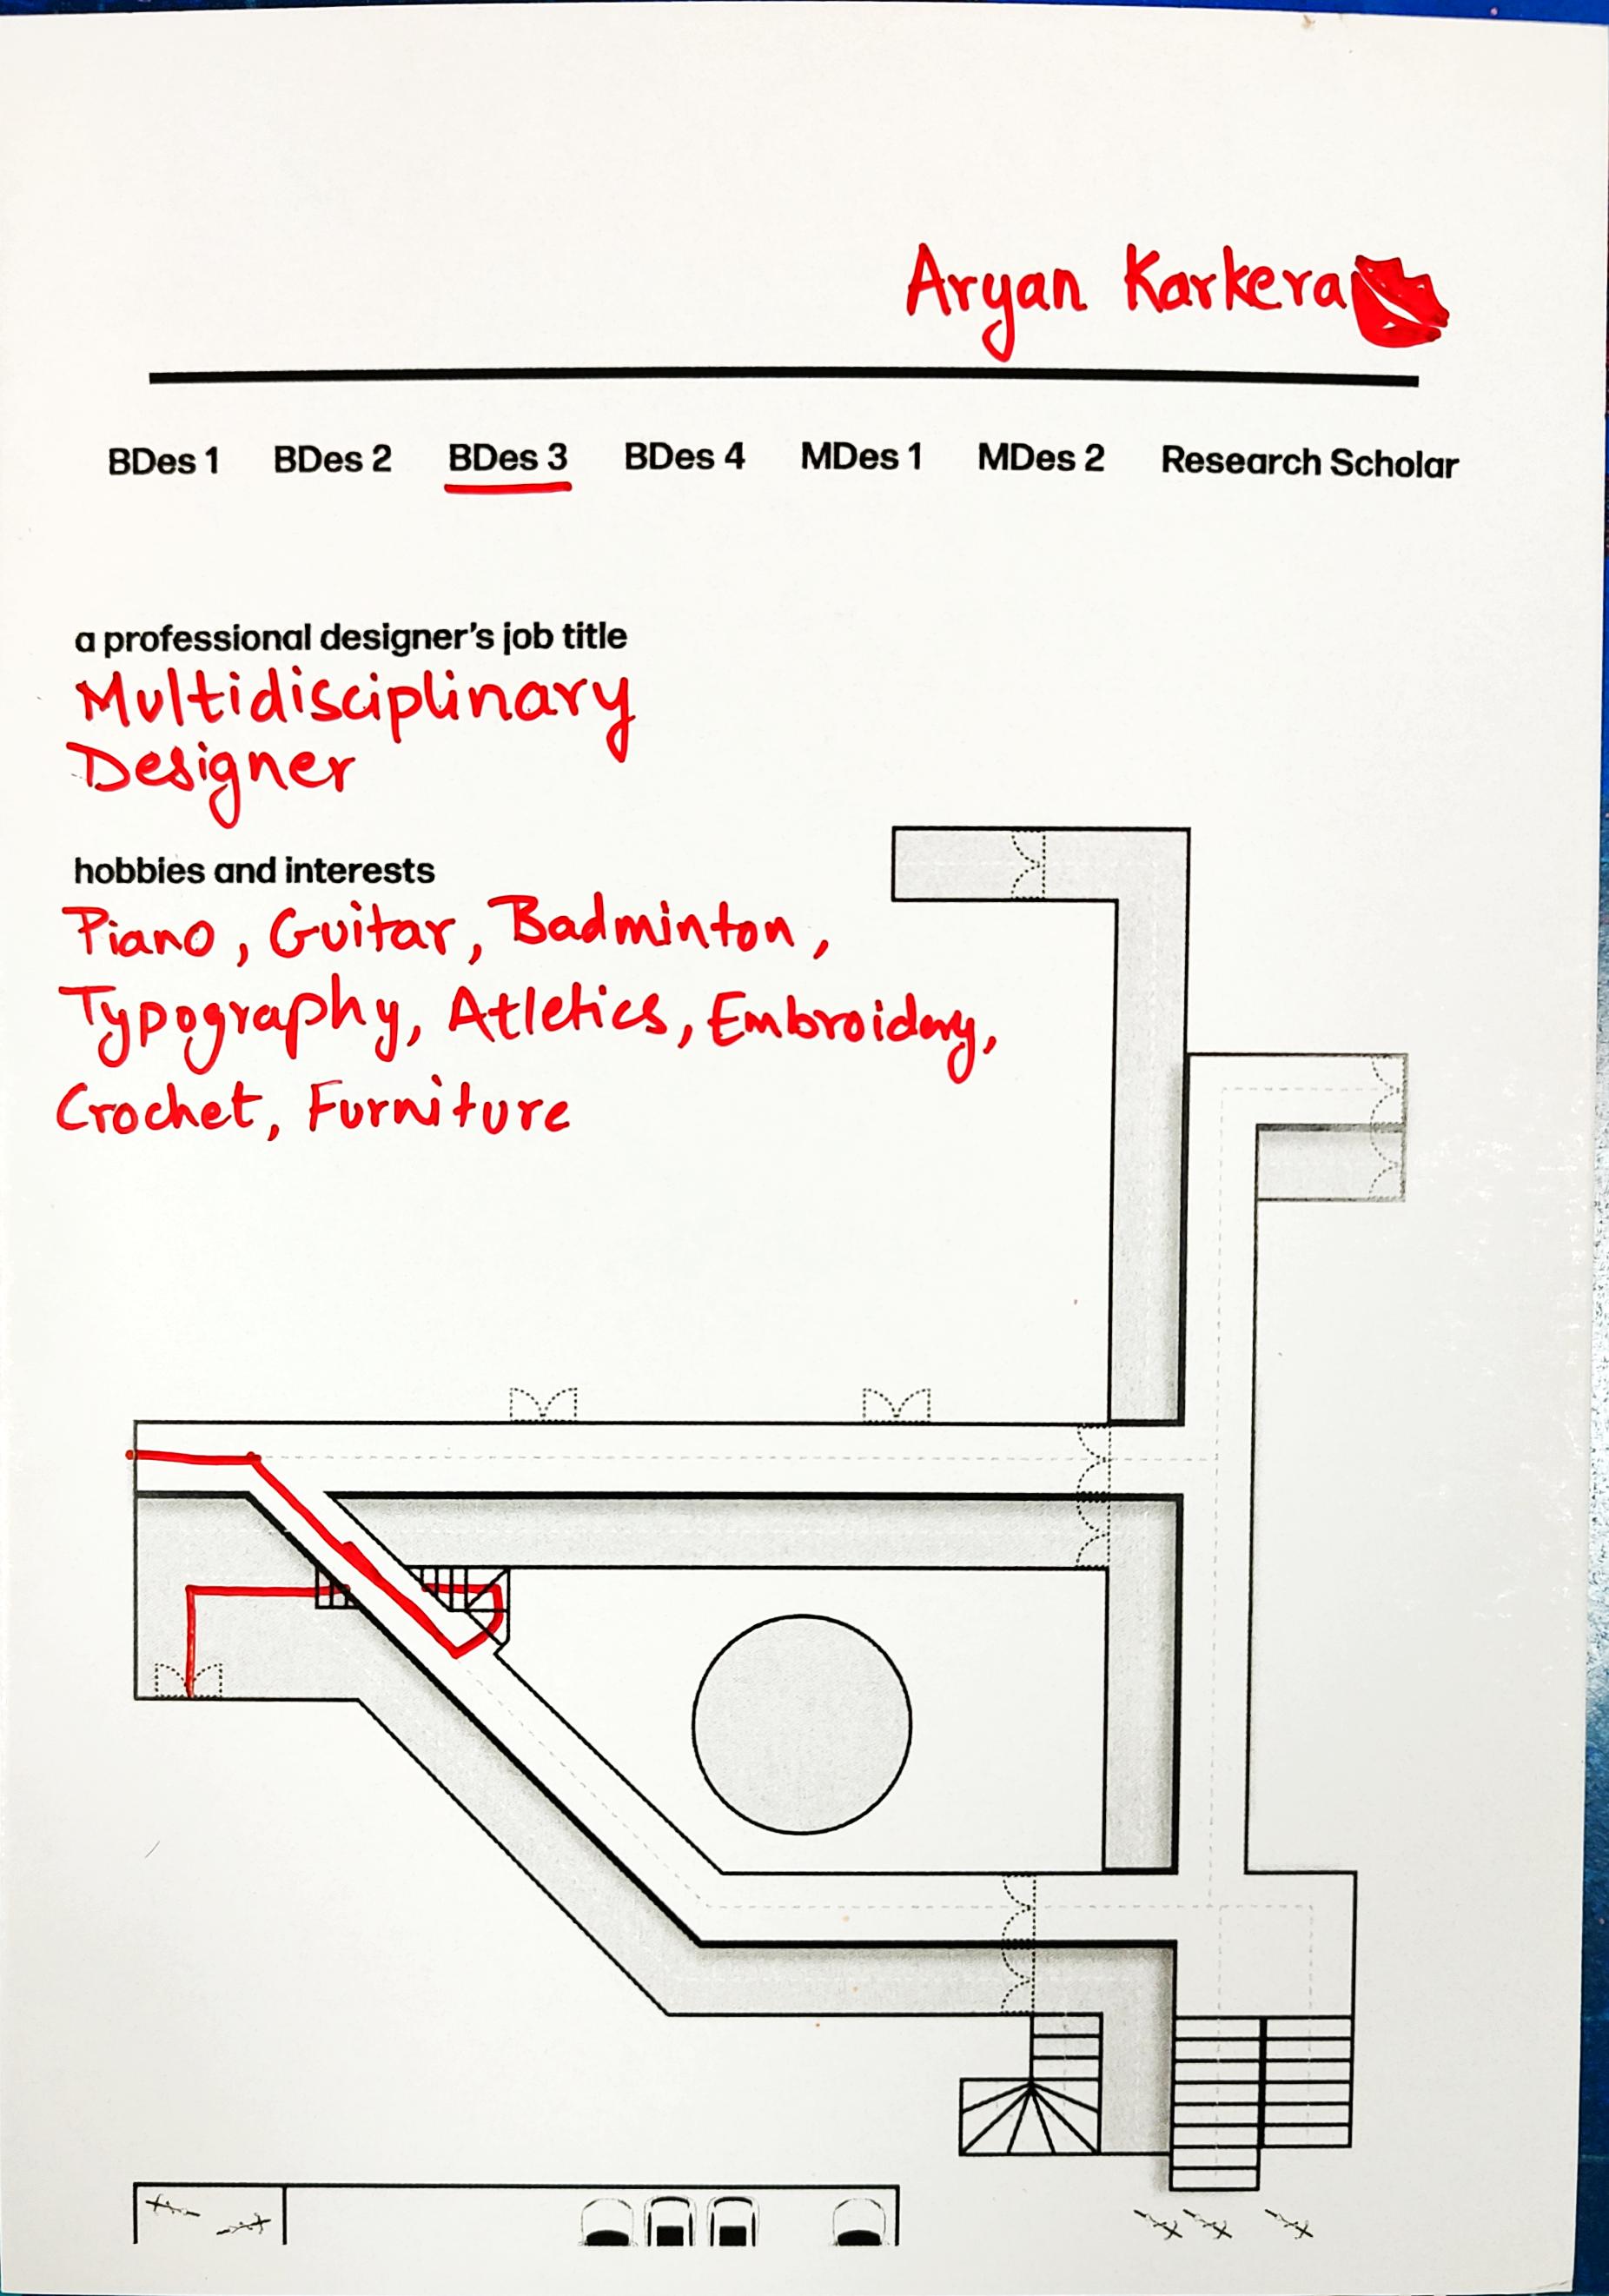 Aryan Karkera
BDes 1 BDes 2 BDes 3 BDes 4 MDes 1 MDes 2 Research Scholar
a professional designer's job title
Multidisciplinary
Designer
hobbies and interests
Piano, Guitar, Badminton,
Typography, Atletics, Embroidery,
Crochet, Furniture